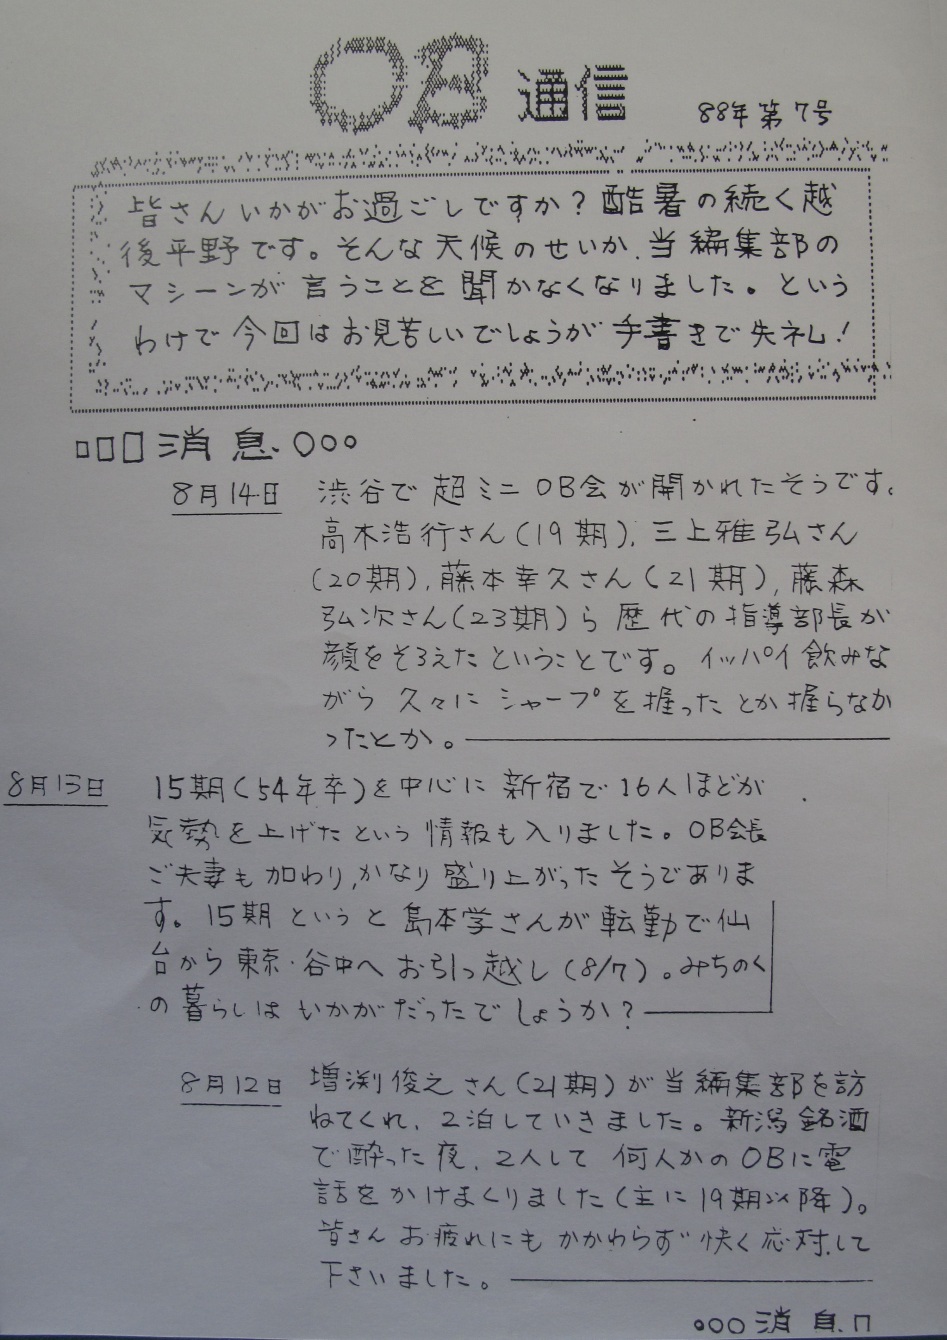 OB通信
88年第7号
皆さんいかがお過ごしですか?酷暑の続く越
後平野です。そんな天候のせいか、当編集部の
マシーンが言うことを聞かなくなりました。という
わけで今回はお見苦しいでしょうが手書きで失礼!
消息
8月14日
渋谷で超ミニOB会が開かれたそうです。
高木浩行さん(19期)、三上雅弘さん
(20期)、藤本幸久さん(21期)、藤森
弘次さん(23期)ら歴代の指導部長が
顔をそろえたということです。イッパイ飲みな
がら久々にシャープを握ったとか握らなか
ったとか。
8月13日
15期(54年卒)を中心に新宿で16人ほどが
気勢を上げたという情報も入りました。OB会長
ご夫妻も加わり、かなり盛り上がったそうでありま
す。15期というと島本学さんが転勤で仙
台から東京・谷中へお引っ越し(8/7)。みちのく
の暮らしはいかがだったでしょうか?
8月12日
増渕俊之さん(21期)が当編集部を訪
ねてくれ、2泊していきました。新潟銘酒
で酔った夜、2人して何人かのOBに電
話をかけまくりました(主に19期以降)。
皆さんお疲れにもかかわらず快く応対して
下さいました。
消息